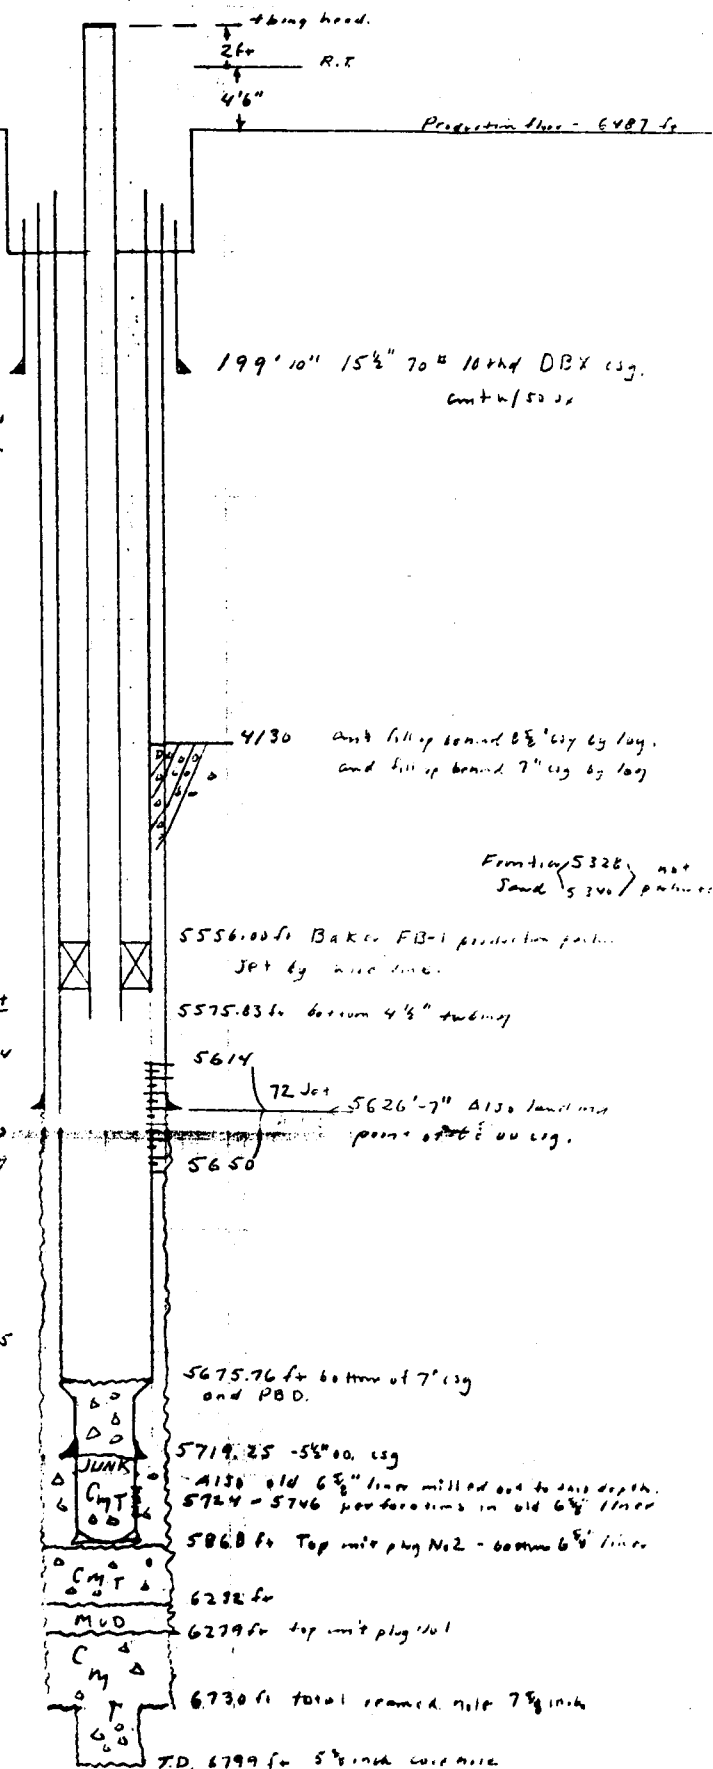 tbing head.
2 ft
R.T.
4'6"
Production floor - 6487 ft
199' 10" 15½" 70# 10 thd DBX csg.
cmt w/ 50 sx
4130 cmt fill up behind 8⅝" csg by log.
and fill up behind 7" csg by log
Frontier 5328 not
Sand 5340
5556.00 ft Baker FB-1 production
set by wire line.
5575.83 ft bottom 4½" tubing
5614
72 Jet
5626'-7" Also landing
point of csg.
5650
5675.76 ft bottom of 7" csg
and PBD.
5719.25 - 5½" OD. csg
JUNK
Also old 6⅝" liner milled out to this depth.
CMT
5724 - 5746 perforations in old 6⅝" liner
5868 ft Top cmt plug No2 - bottom 6⅝" liner
CMT
6232 ft
MUD
6279 ft top cmt plug No1
CMT
6730 ft total reamed hole 7⅝ inch
T.D. 6799 ft inch core hole